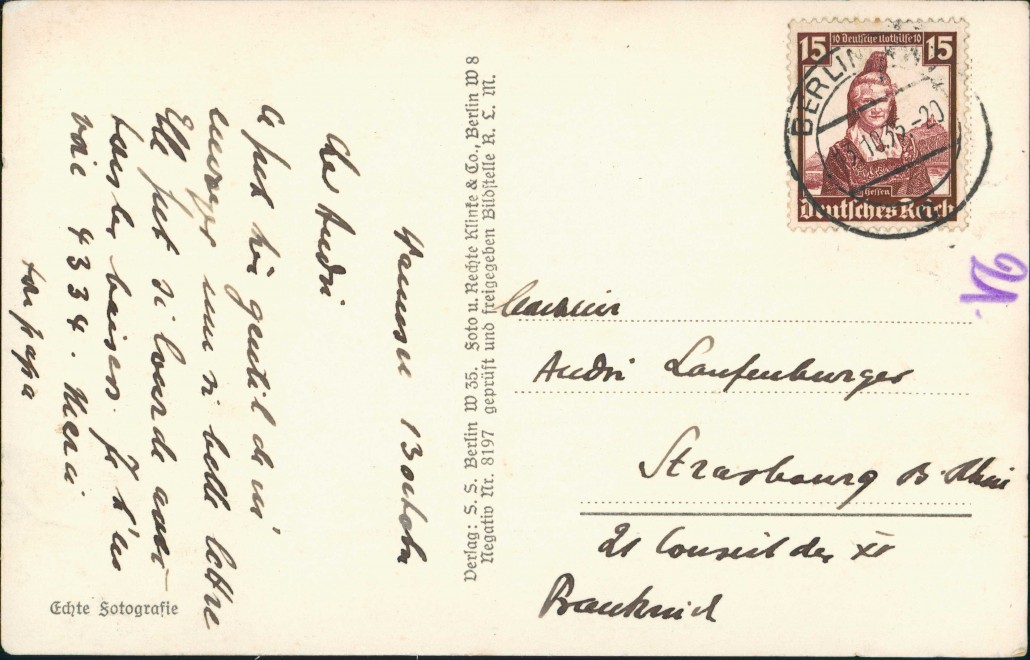 Wannsee 13 octobre
Cher André
C'était très gentil de m'
envoyer une si belle lettre
Elle était si lourde avec
tous les baisers. Je t'en
envoie 4334. Merci
ton papa
Echte Fotografie
Verlag: S. S. Berlin W 35. Foto u. Rechte Klinke & Co., Berlin W 8
Negativ Nr. 8197 geprüft und freigegeben Bildstelle R. L. M.
15 10 Deutsche Nothilfe 10 15
Hessen
Deutsches Reich
BERLIN
13.10.35.-20
Monsieur
André Laufenburger
Strasbourg B. Rhin
21 Conseil des XV
Frankreich